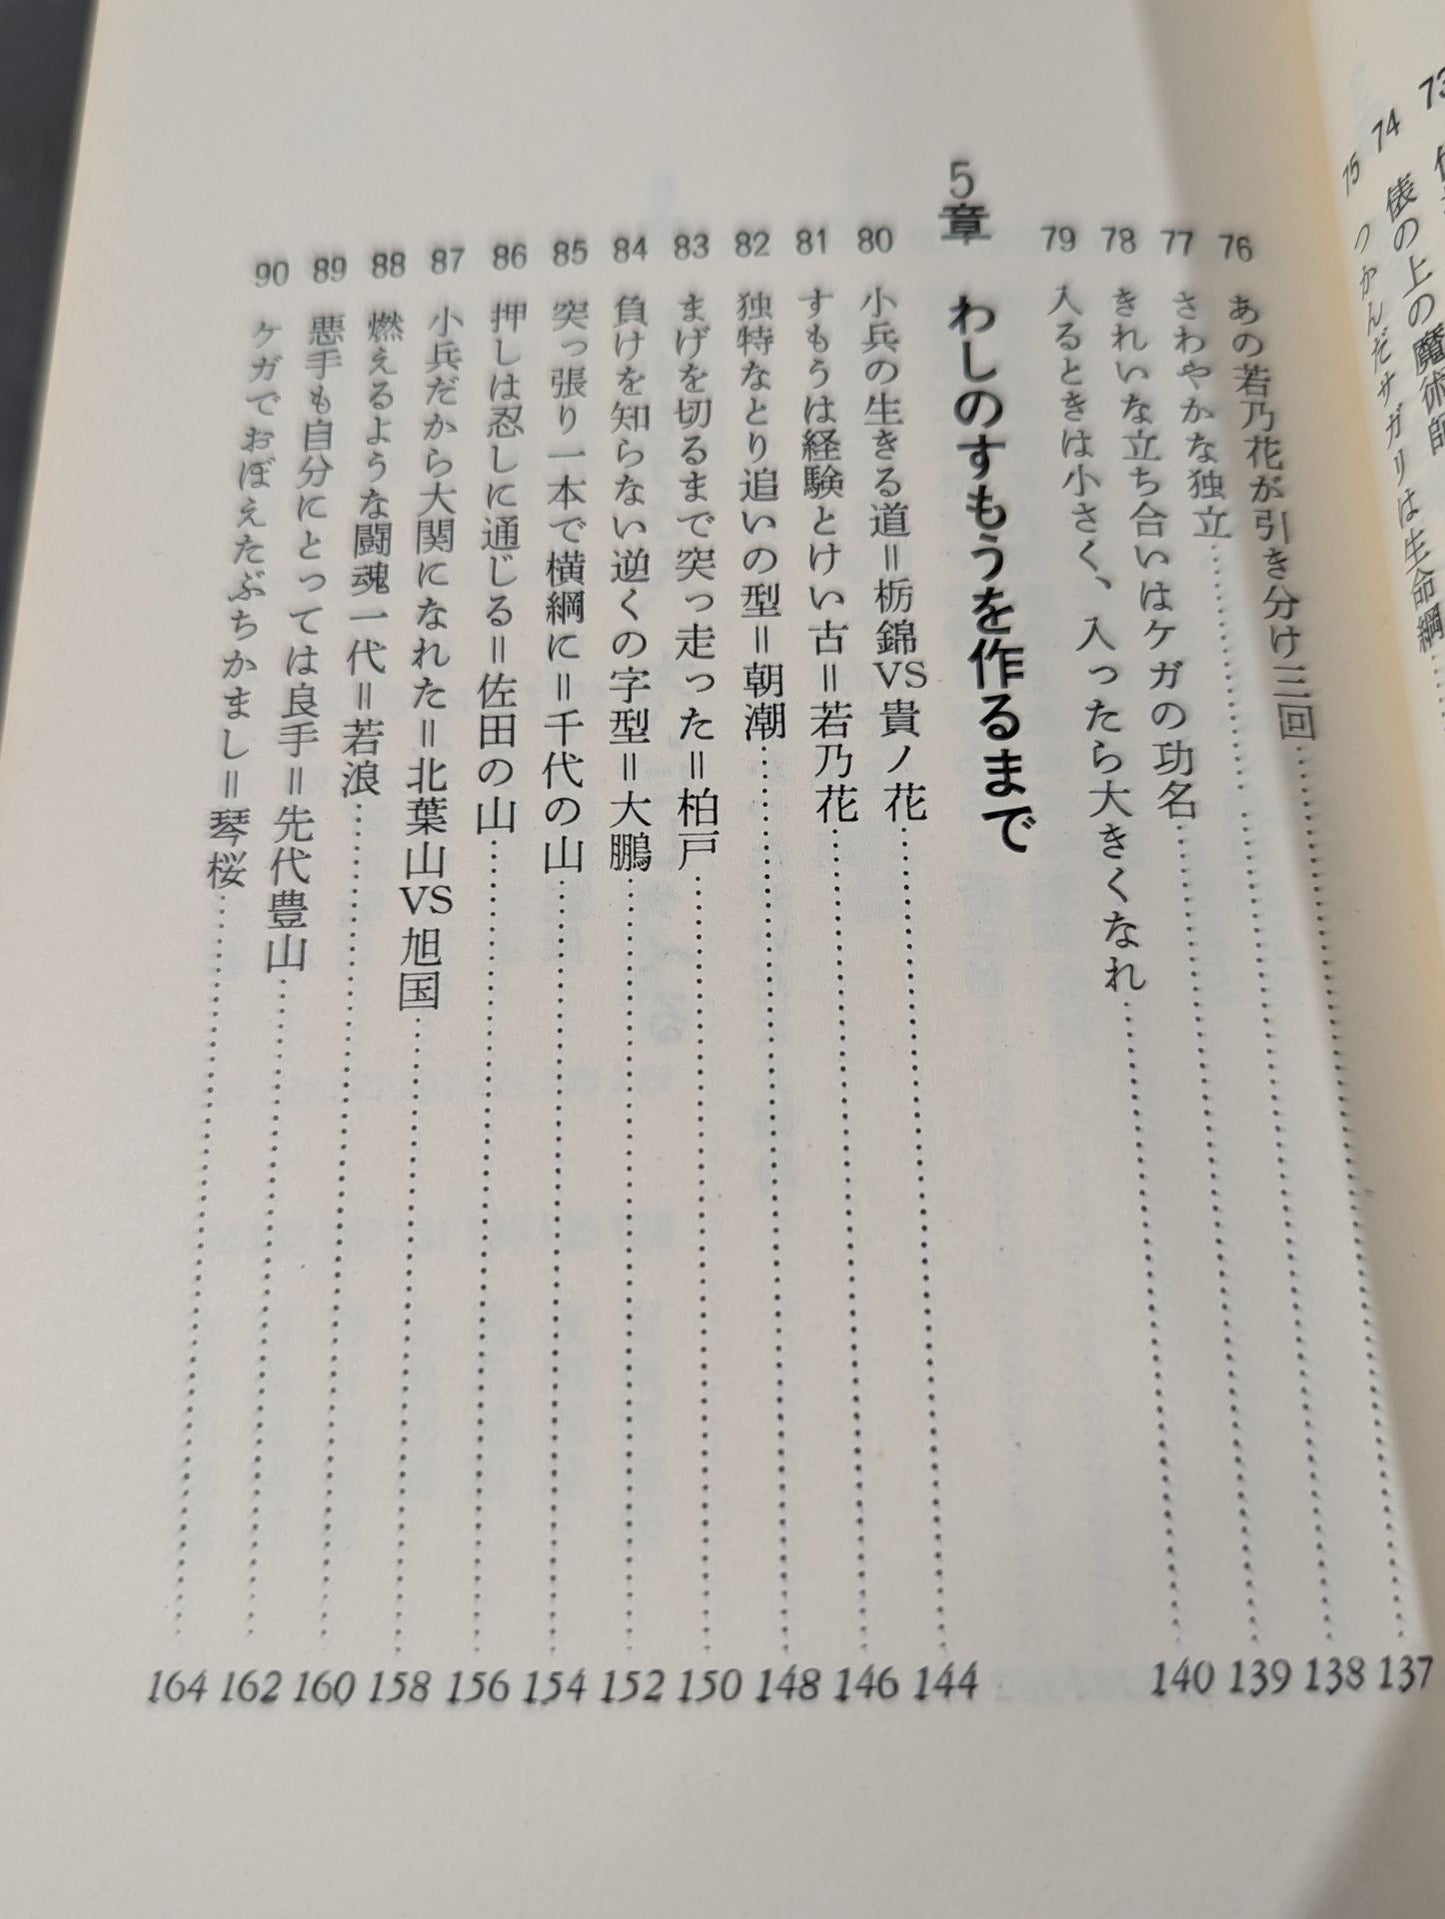 74 俵の上の魔術師
75 つかんだサガリは生命綱……
76 あの若乃花が引き分け三回……137
77 さわやかな独立……138
78 きれいな立ち合いはケガの功名……139
79 入るときは小さく、入ったら大きくなれ……140
5章 わしのすもうを作るまで
80 小兵の生きる道＝栃錦VS貴ノ花……144
81 すもうは経験とけい古＝若乃花……146
82 独特なとり追いの型＝朝潮……148
83 まげを切るまで突っ走った＝柏戸……150
84 負けを知らない逆くの字型＝大鵬……152
85 突っ張り一本で横綱に＝千代の山……154
86 押しは忍しに通じる＝佐田の山……156
87 小兵だから大関になれた＝北葉山VS旭国……158
88 燃えるような闘魂一代＝若浪……160
89 悪手も自分にとっては良手＝先代豊山……162
90 ケガでおぼえたぶちかまし＝琴桜……164